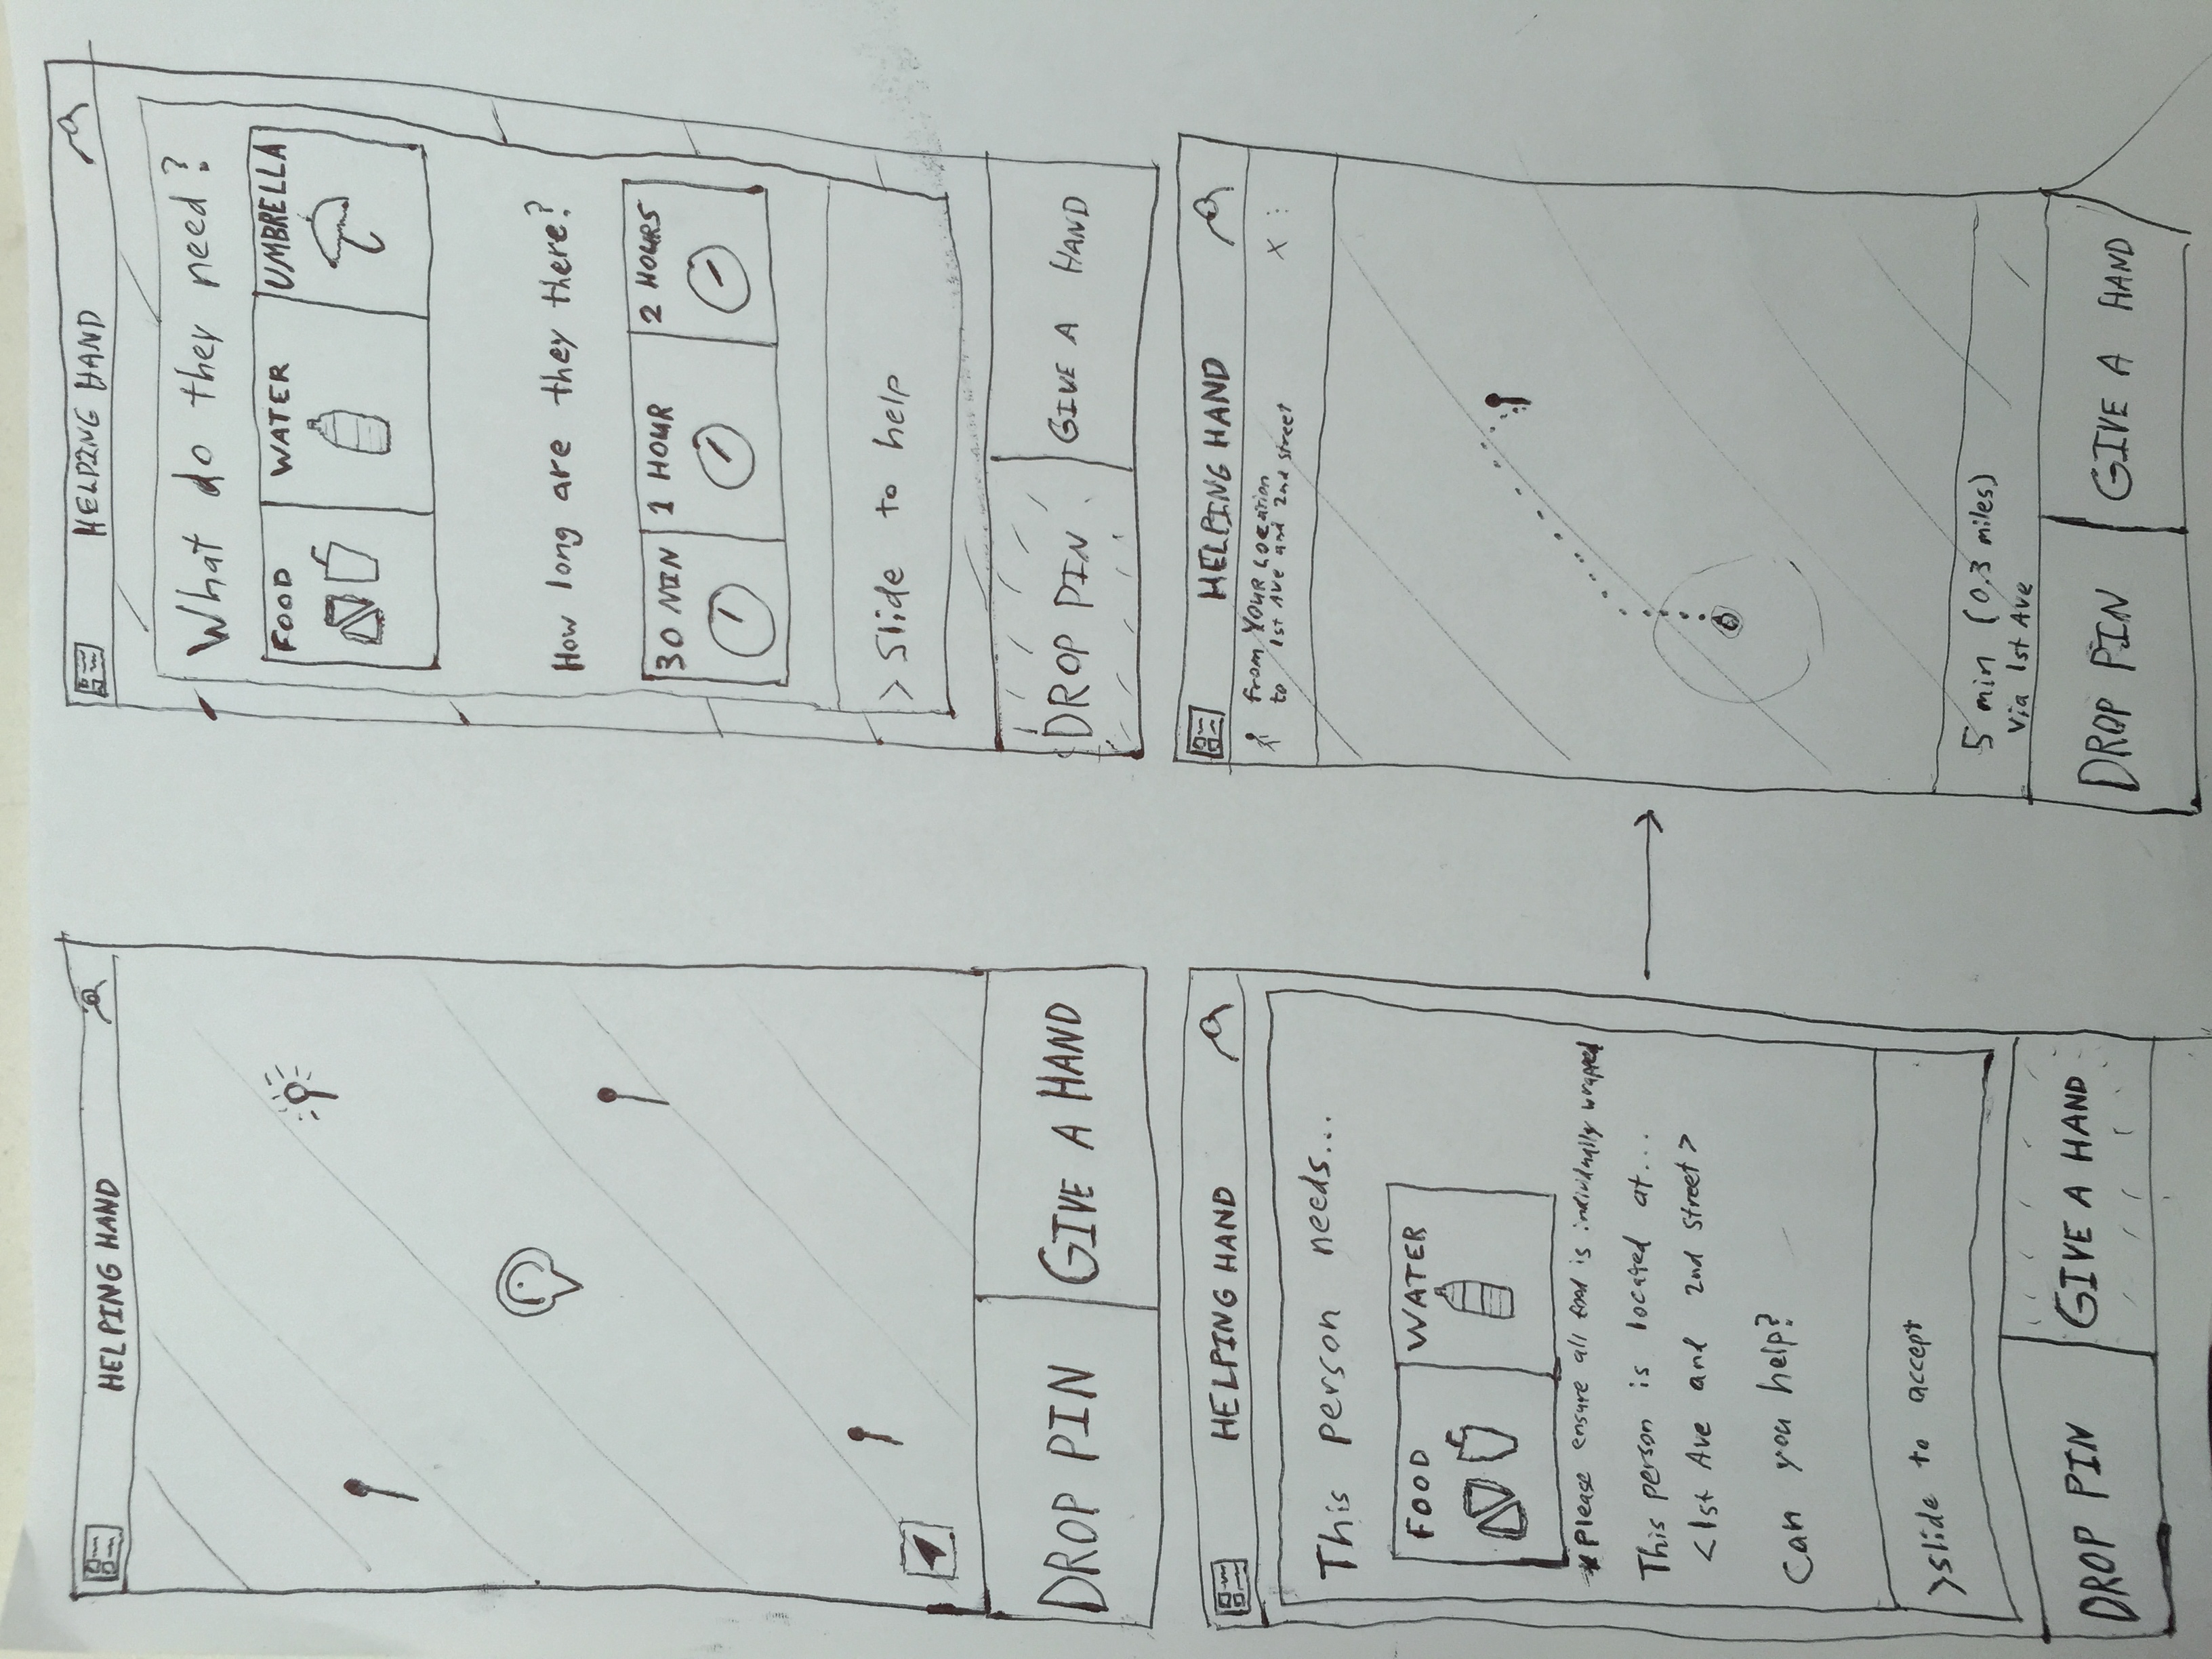 HELPING HAND
DROP PIN
GIVE A HAND
HELPING HAND
What do they need?
FOOD
WATER
UMBRELLA
How long are they there?
30 MIN
1 HOUR
2 HOURS
> Slide to help
DROP PIN
GIVE A HAND
HELPING HAND
This person needs...
FOOD
WATER
* Please ensure all food is individually wrapped
This person is located at...
<1st Ave and 2nd Street>
Can you help?
> Slide to accept
DROP PIN
GIVE A HAND
HELPING HAND
from YOUR LOCation
to 1st Ave and 2nd Street
X
5 min (0.3 miles)
Via 1st Ave
DROP PIN
GIVE A HAND